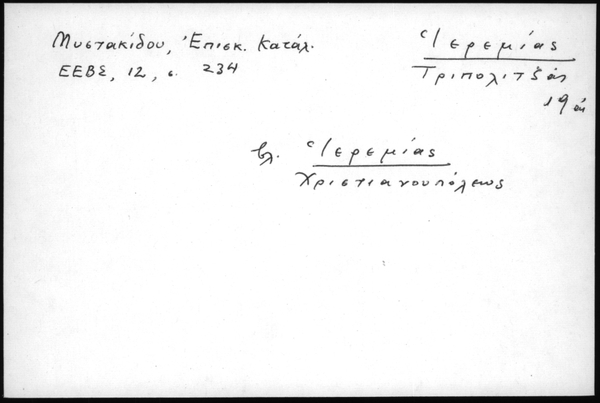 Μυστακίδου, Ἐπισκ. Κατάλ.
ΕΕΒΣ, 12, σ. 234
Ἱερεμίας
Τριπολιτζᾶς
19 αἰ
βλ. Ἱερεμίας
Χριστιανουπόλεως